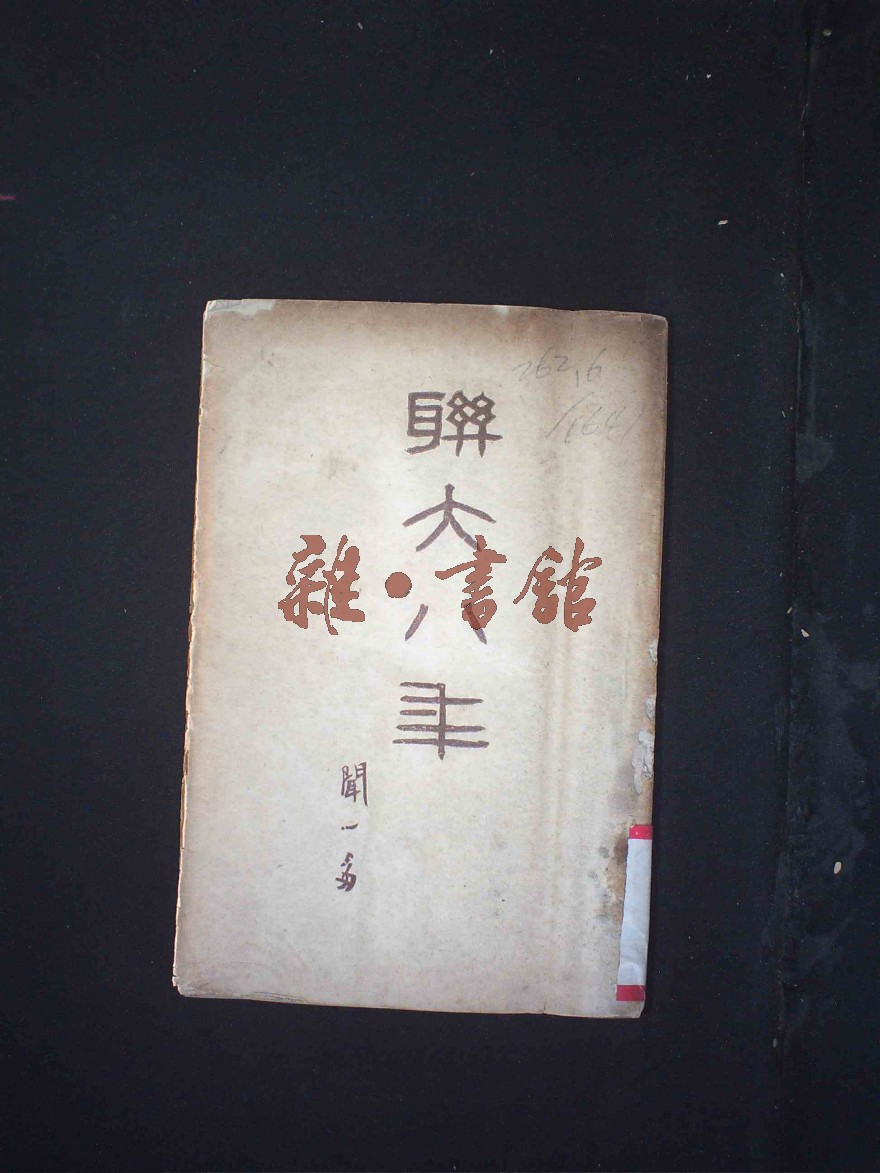 聯大八年
聞一多
262.6
雜·書館